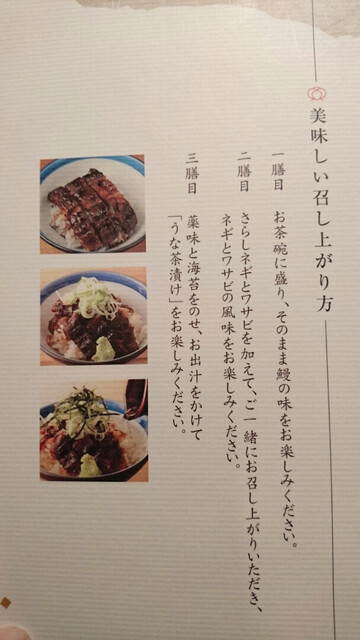 美味しい召し上がり方
一膳目　お茶碗に盛り、そのまま鰻の味をお楽しみください。
二膳目　さらしネギとワサビを加えて、ご一緒にお召し上がりいただき、
ネギとワサビの風味をお楽しみください。
三膳目　薬味と海苔をのせ、お出汁をかけて
「うな茶漬け」をお楽しみください。